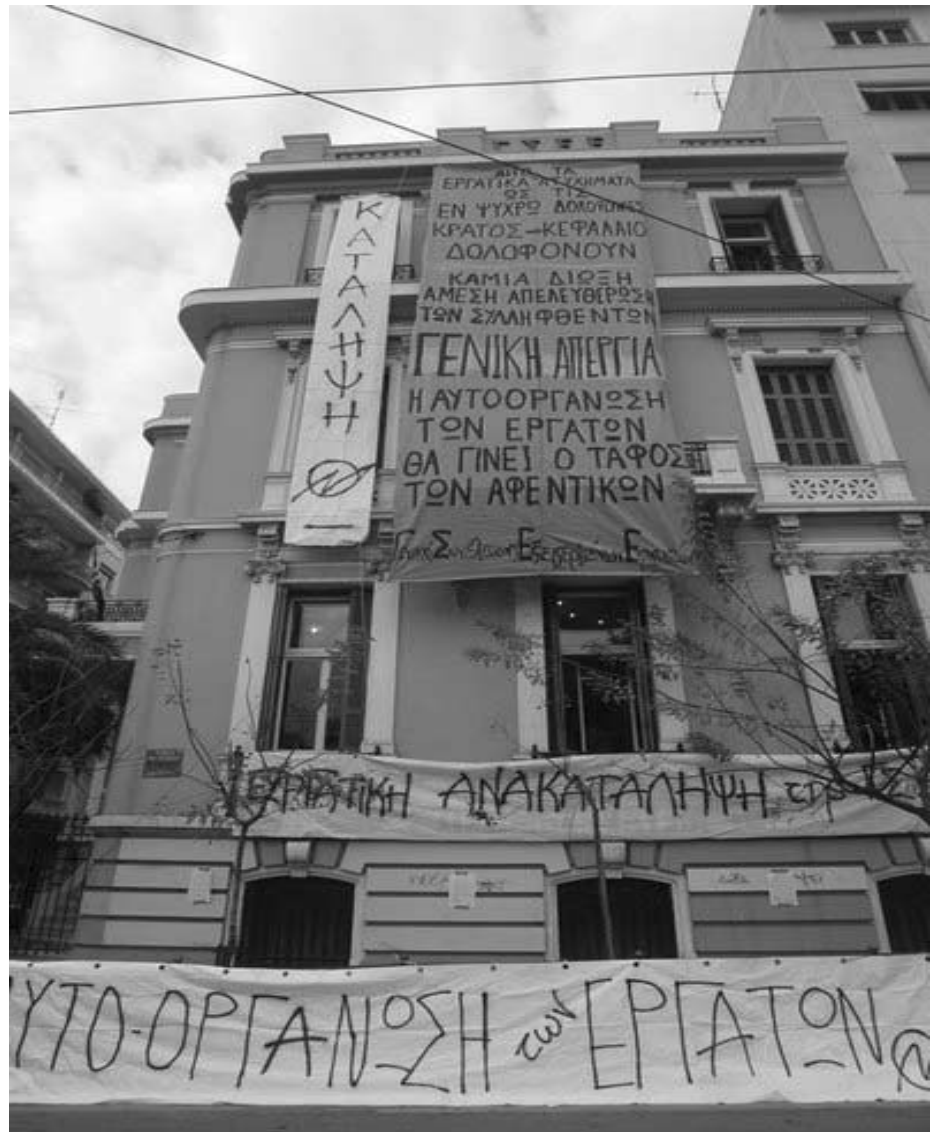 ΚΑΤΑΛΗΨΗ
ΑΠΟ ΤΑ
ΕΡΓΑΤΙΚΑ ΑΤΥΧΗΜΑΤΑ
ΩΣ ΤΙΣ
ΕΝ ΨΥΧΡΩ ΔΟΛΟΦΟΝΙΕΣ
ΚΡΑΤΟΣ-ΚΕΦΑΛΑΙΟ
ΔΟΛΟΦΟΝΟΥΝ
ΚΑΜΙΑ ΔΙΩΞΗ
ΑΜΕΣΗ ΑΠΕΛΕΥΘΕΡΩΣΗ
ΤΩΝ ΣΥΛΛΗΦΘΕΝΤΩΝ
ΓΕΝΙΚΗ ΑΠΕΡΓΙΑ
Η ΑΥΤΟΟΡΓΑΝΩΣΗ
ΤΩΝ ΕΡΓΑΤΩΝ
ΘΑ ΓΙΝΕΙ Ο ΤΑΦΟΣ
ΤΩΝ ΑΦΕΝΤΙΚΩΝ
ΕΡΓΑΤΙΚΗ ΑΝΑΚΑΤΑΛΗΨΗ της
ΥΤΟ-ΟΡΓΑΝΩΣΗ των ΕΡΓΑΤΩΝ